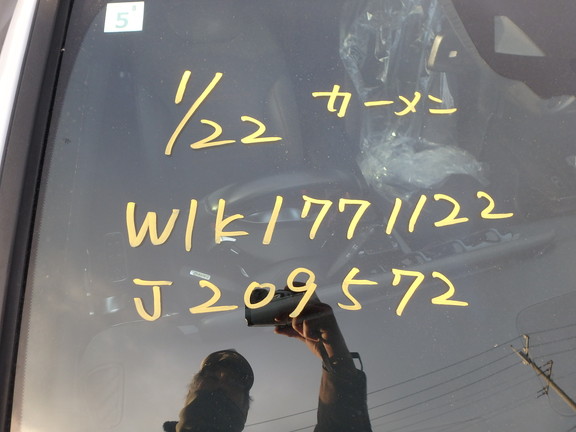 5
1/22 カーメニ
W1K1771122
J209572